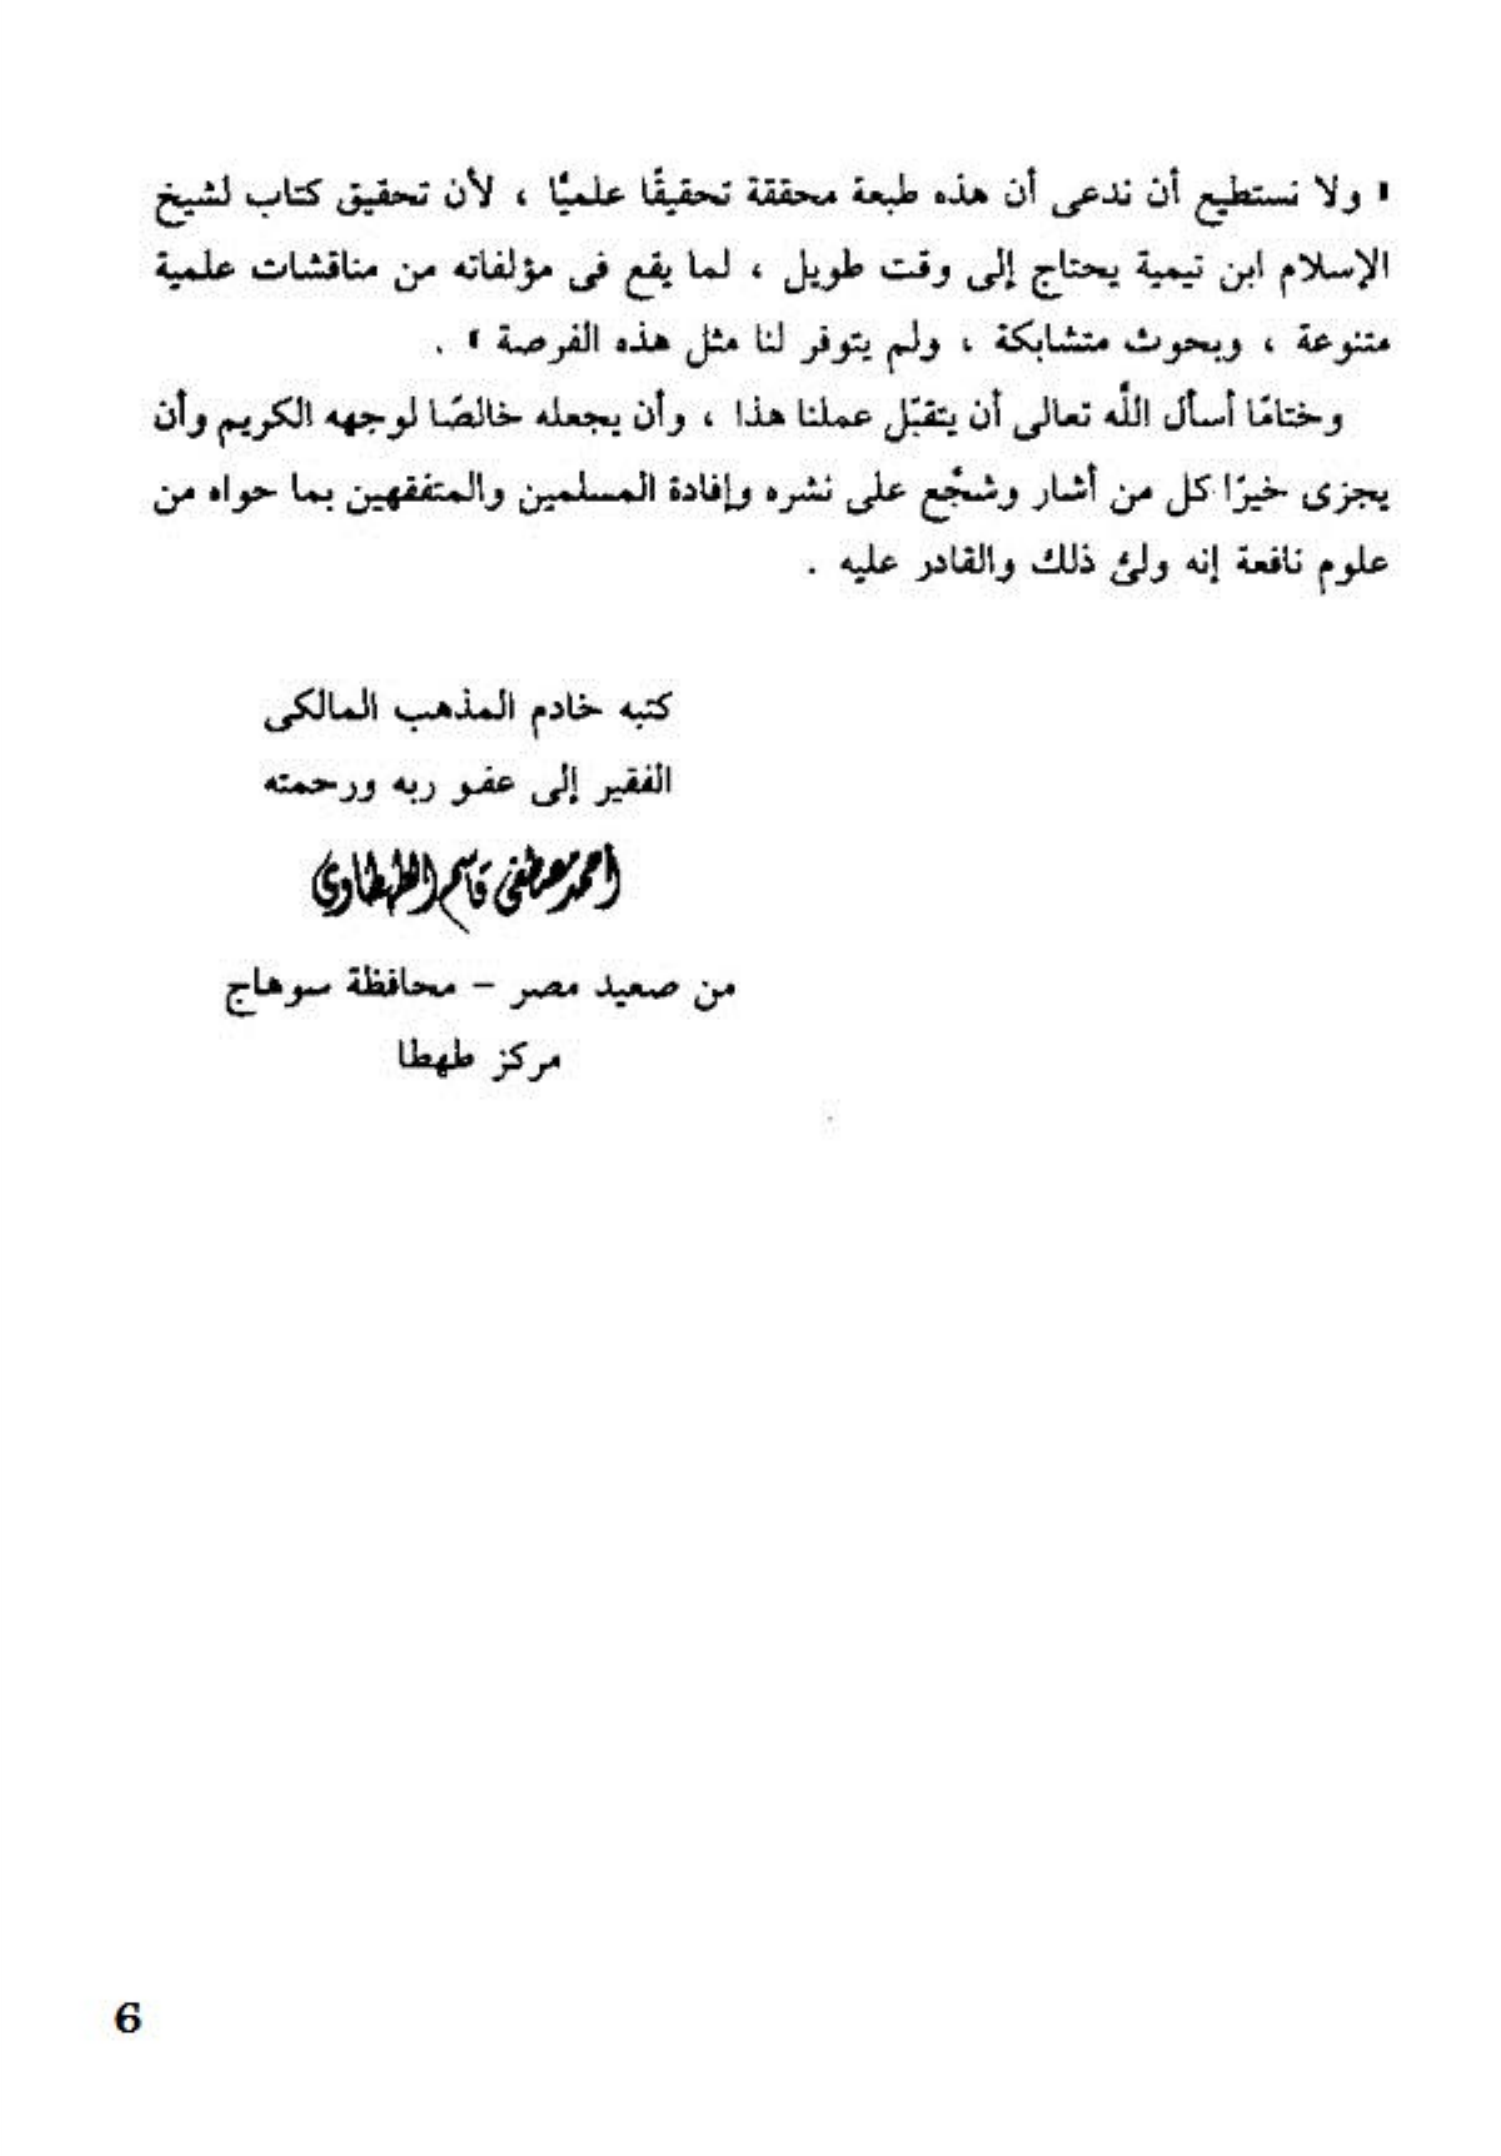 « ولا نستطيع أن ندعى أن هذه طبعة محققة تحقيقًا علميًّا ، لأن تحقيق كتاب لشيخ
الإسلام ابن تيمية يحتاج إلى وقت طويل ، لما يقع فى مؤلفاته من مناقشات علمية
متنوعة ، وبحوث متشابكة ، ولم يتوفر لنا مثل هذه الفرصة » .
وختامًا أسأل اللَّه تعالى أن يتقبّل عملنا هذا ، وأن يجعله خالصًا لوجهه الكريم وأن
يجزى خيرًا كل من أشار وشجَّع على نشره وإفادة المسلمين والمتفقهين بما حواه من
علوم نافعة إنه ولىُّ ذلك والقادر عليه .
كتبه خادم المذهب المالكى
الفقير إلى عفو ربه ورحمته
أحمد مصطفى قاسم الطهطاوي
من صعيد مصر – محافظة سوهاج
مركز طهطا
6